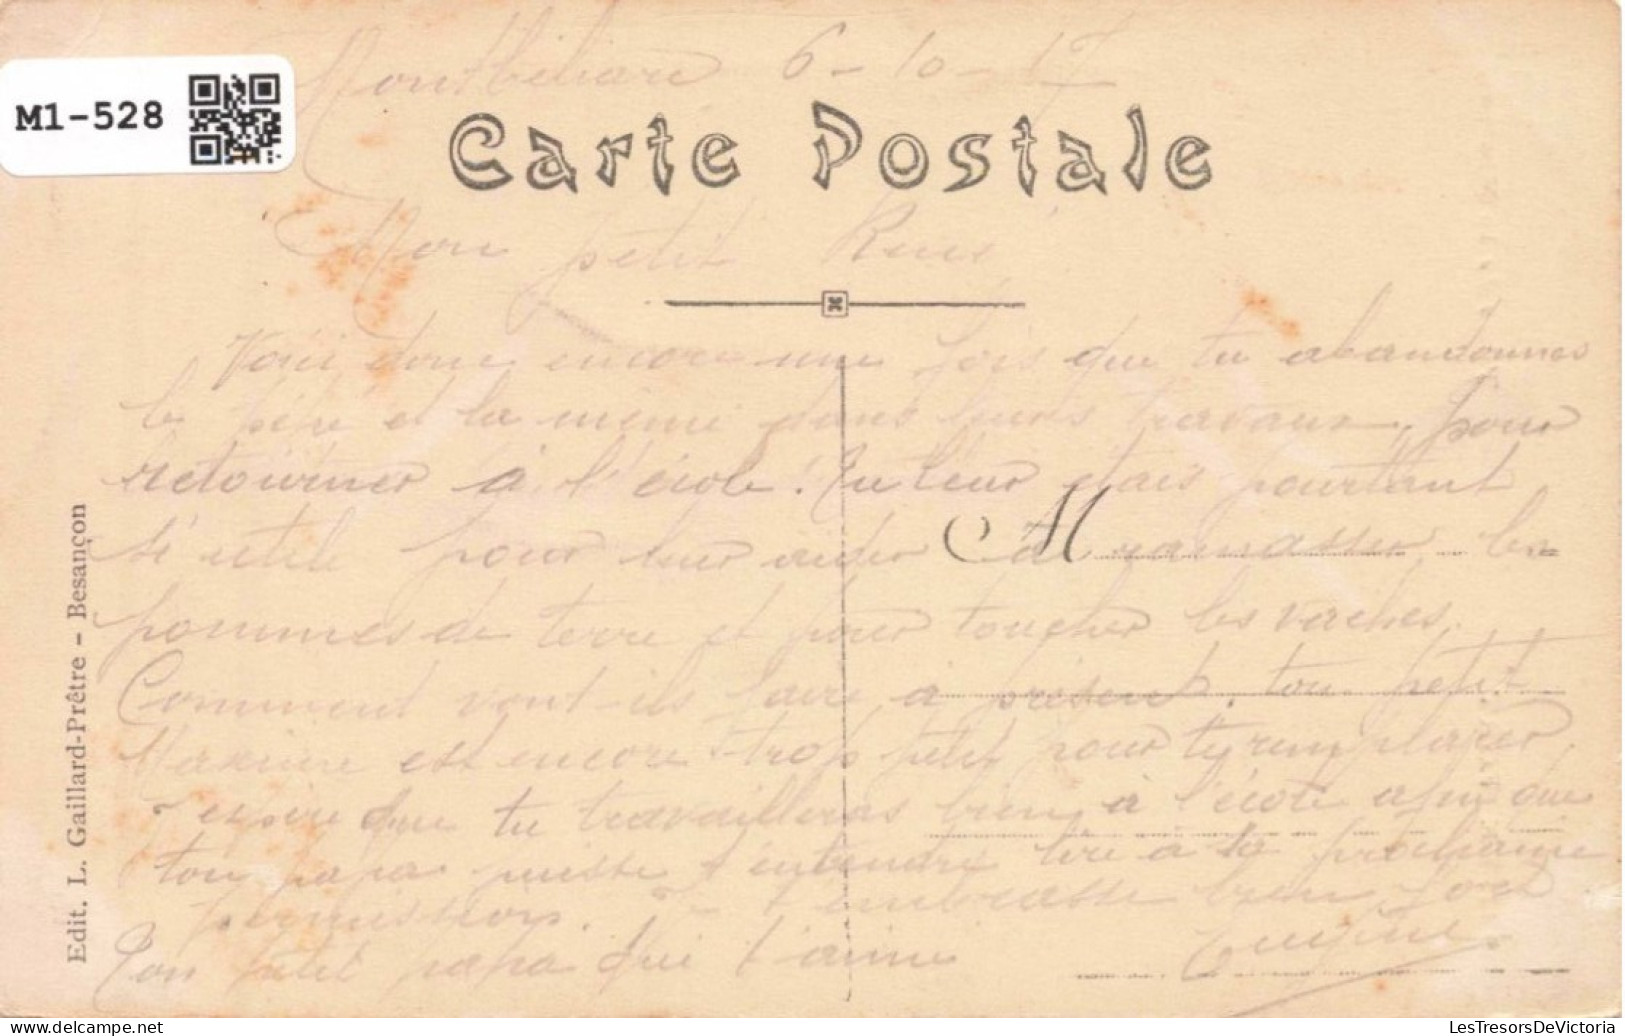 Montbéliard 6-10-17
M1-528
Carte Postale
Mon petit René
Voici donc encore une fois que tu abandonnes
le pépé et la mémé dans leurs travaux, pour
retourner à l'école! Tu leur étais pourtant
si utile pour leur aider à ramasser les
M
pommes de terre et pour toucher les vaches.
Comment vont-ils faire à présent, ton petit
Maxime est encore trop petit pour t'y remplacer,
J'espère que tu travailleras bien à l'école afin que
ton papa puisse t'entendre lire à la prochaine
permission. Je t'embrasse bien fort
Ton petit papa qui t'aime Eugène
Edit. L. Gaillard-Prêtre - Besançon
LesTresorsDeVictoria